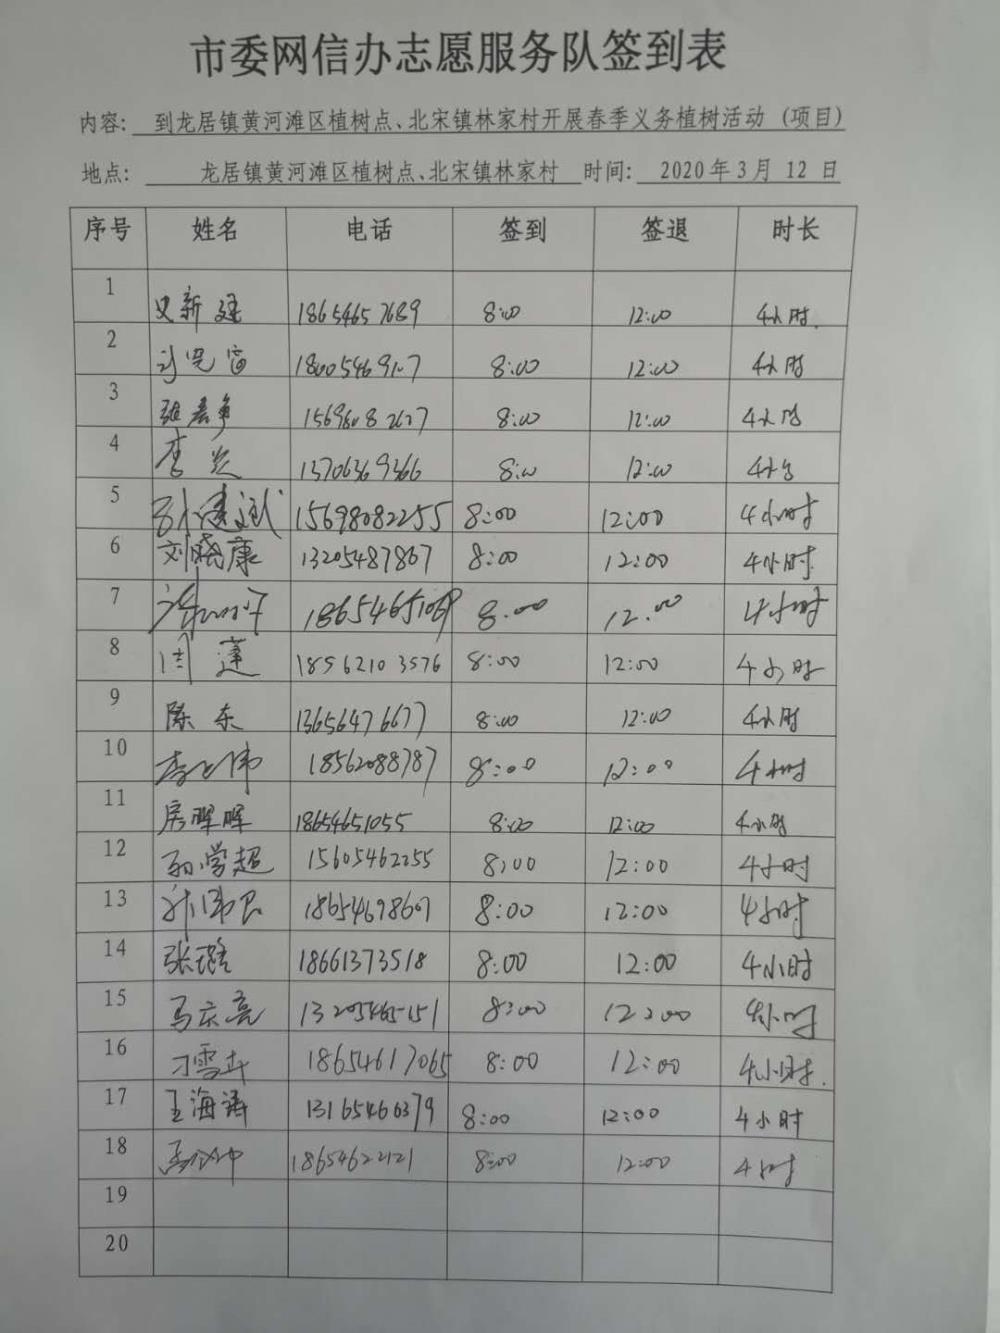 市委网信办志愿服务队签到表
内容: 到龙居镇黄河滩区植树点、北宋镇林家村开展春季义务植树活动 (项目)
地点: 龙居镇黄河滩区植树点、北宋镇林家村 时间: 2020年3月 12 日
序号 姓名 电话 签到 签退 时长
1 18654657689 8:00 12:00 4小时
2 18005469107 8:00 12:00 4小时
3 8:00 12:00 4小时
4 李 13706369366 8:00 12:00 4小时
5 15698082255 8:00 12:00 4小时
6 刘晓康 13205487867 8:00 12:00 4小时
7 8:00 12:00 4小时
8 闫莲 18562103576 8:00 12:00 4小时
9 陈东 13656476677 8:00 12:00 4小时
10 18562088787 8:00 12:00 4小时
11 房晖晖 18654651055 8:00 12:00 4小时
12 孙学超 15605462255 8:00 12:00 4小时
13 8:00 12:00 4小时
14 张璐 18661373518 8:00 12:00 4小时
15 马庆亮 13205465151 8:00 12:00 4小时
16 刁雪 18654617065 8:00 12:00 4小时
17 王海涛 13165466379 8:00 12:00 4小时
18 18654622121 8:00 12:00 4小时
19
20